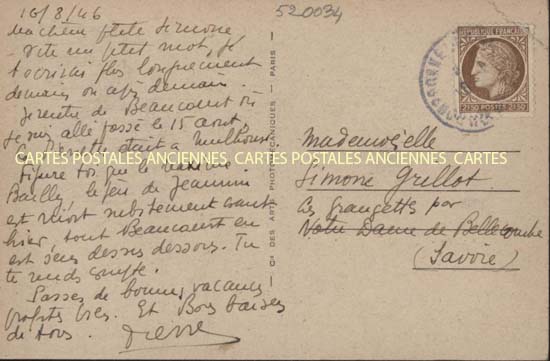 16/8/46
Ma chère petite Simone
Vite un petit mot, je
t'écrirai plus longuement
demain ou après demain.
Je rentre de Beaucourt où
je suis allé passé le 15 août.
était à Mulhouse
Figure toi que le
Bailly, le père de Jeannin
est mort subitement avant
hier, tout Beaucourt en
est sens dessus dessous. Tu
te rends compte.
Passes de bonnes vacances
profites bien. Et Bons baisers
de tous. Pierre
520034
Cie DES ARTS PHOTOMÉCANIQUES - PARIS -
RÉPUBLIQUE FRANÇAISE
2f50 POSTES 2f50
Mademoiselle
Simone Grillot
Les Grangettes par
Notre Dame de Bellecombe
(Savoie)
CARTES POSTALES ANCIENNES CARTES POSTALES ANCIENNES CARTES